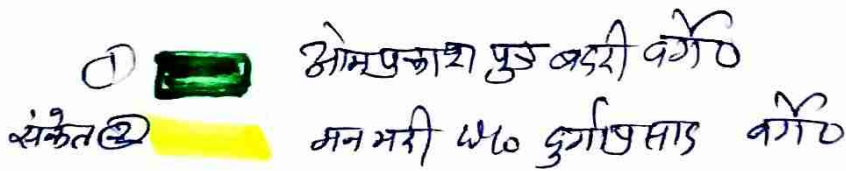 ① ओमप्रकाश पुत्र बदरी वगै०
संकेत ② मनभरी w/o दुर्गाप्रसाद वगै०